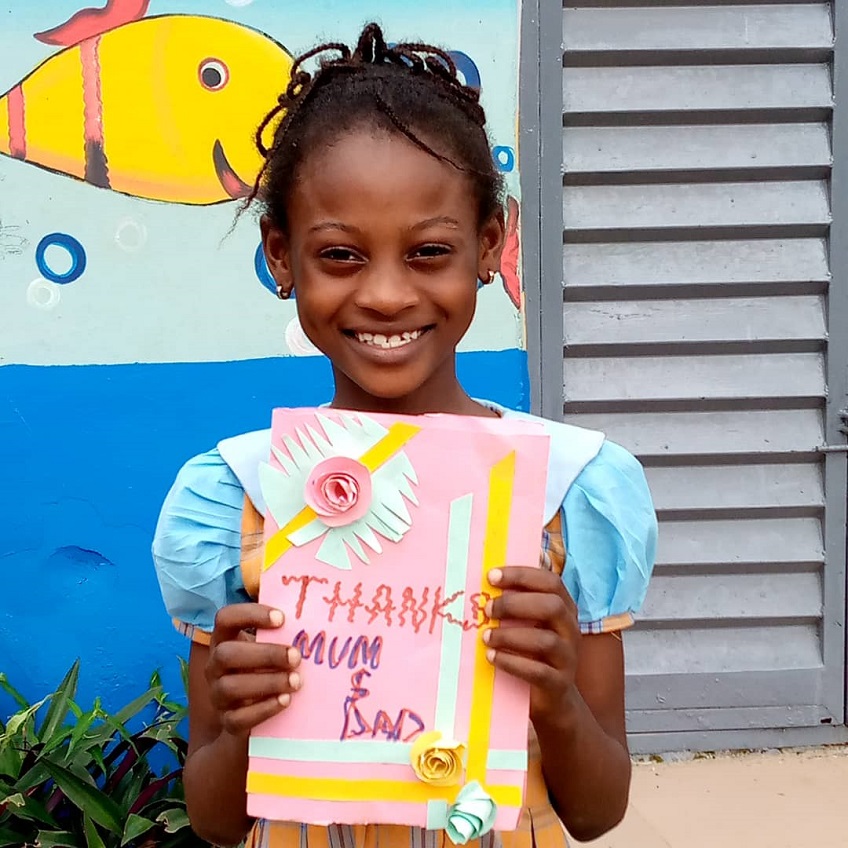 THANKS
MUM
&
DAD